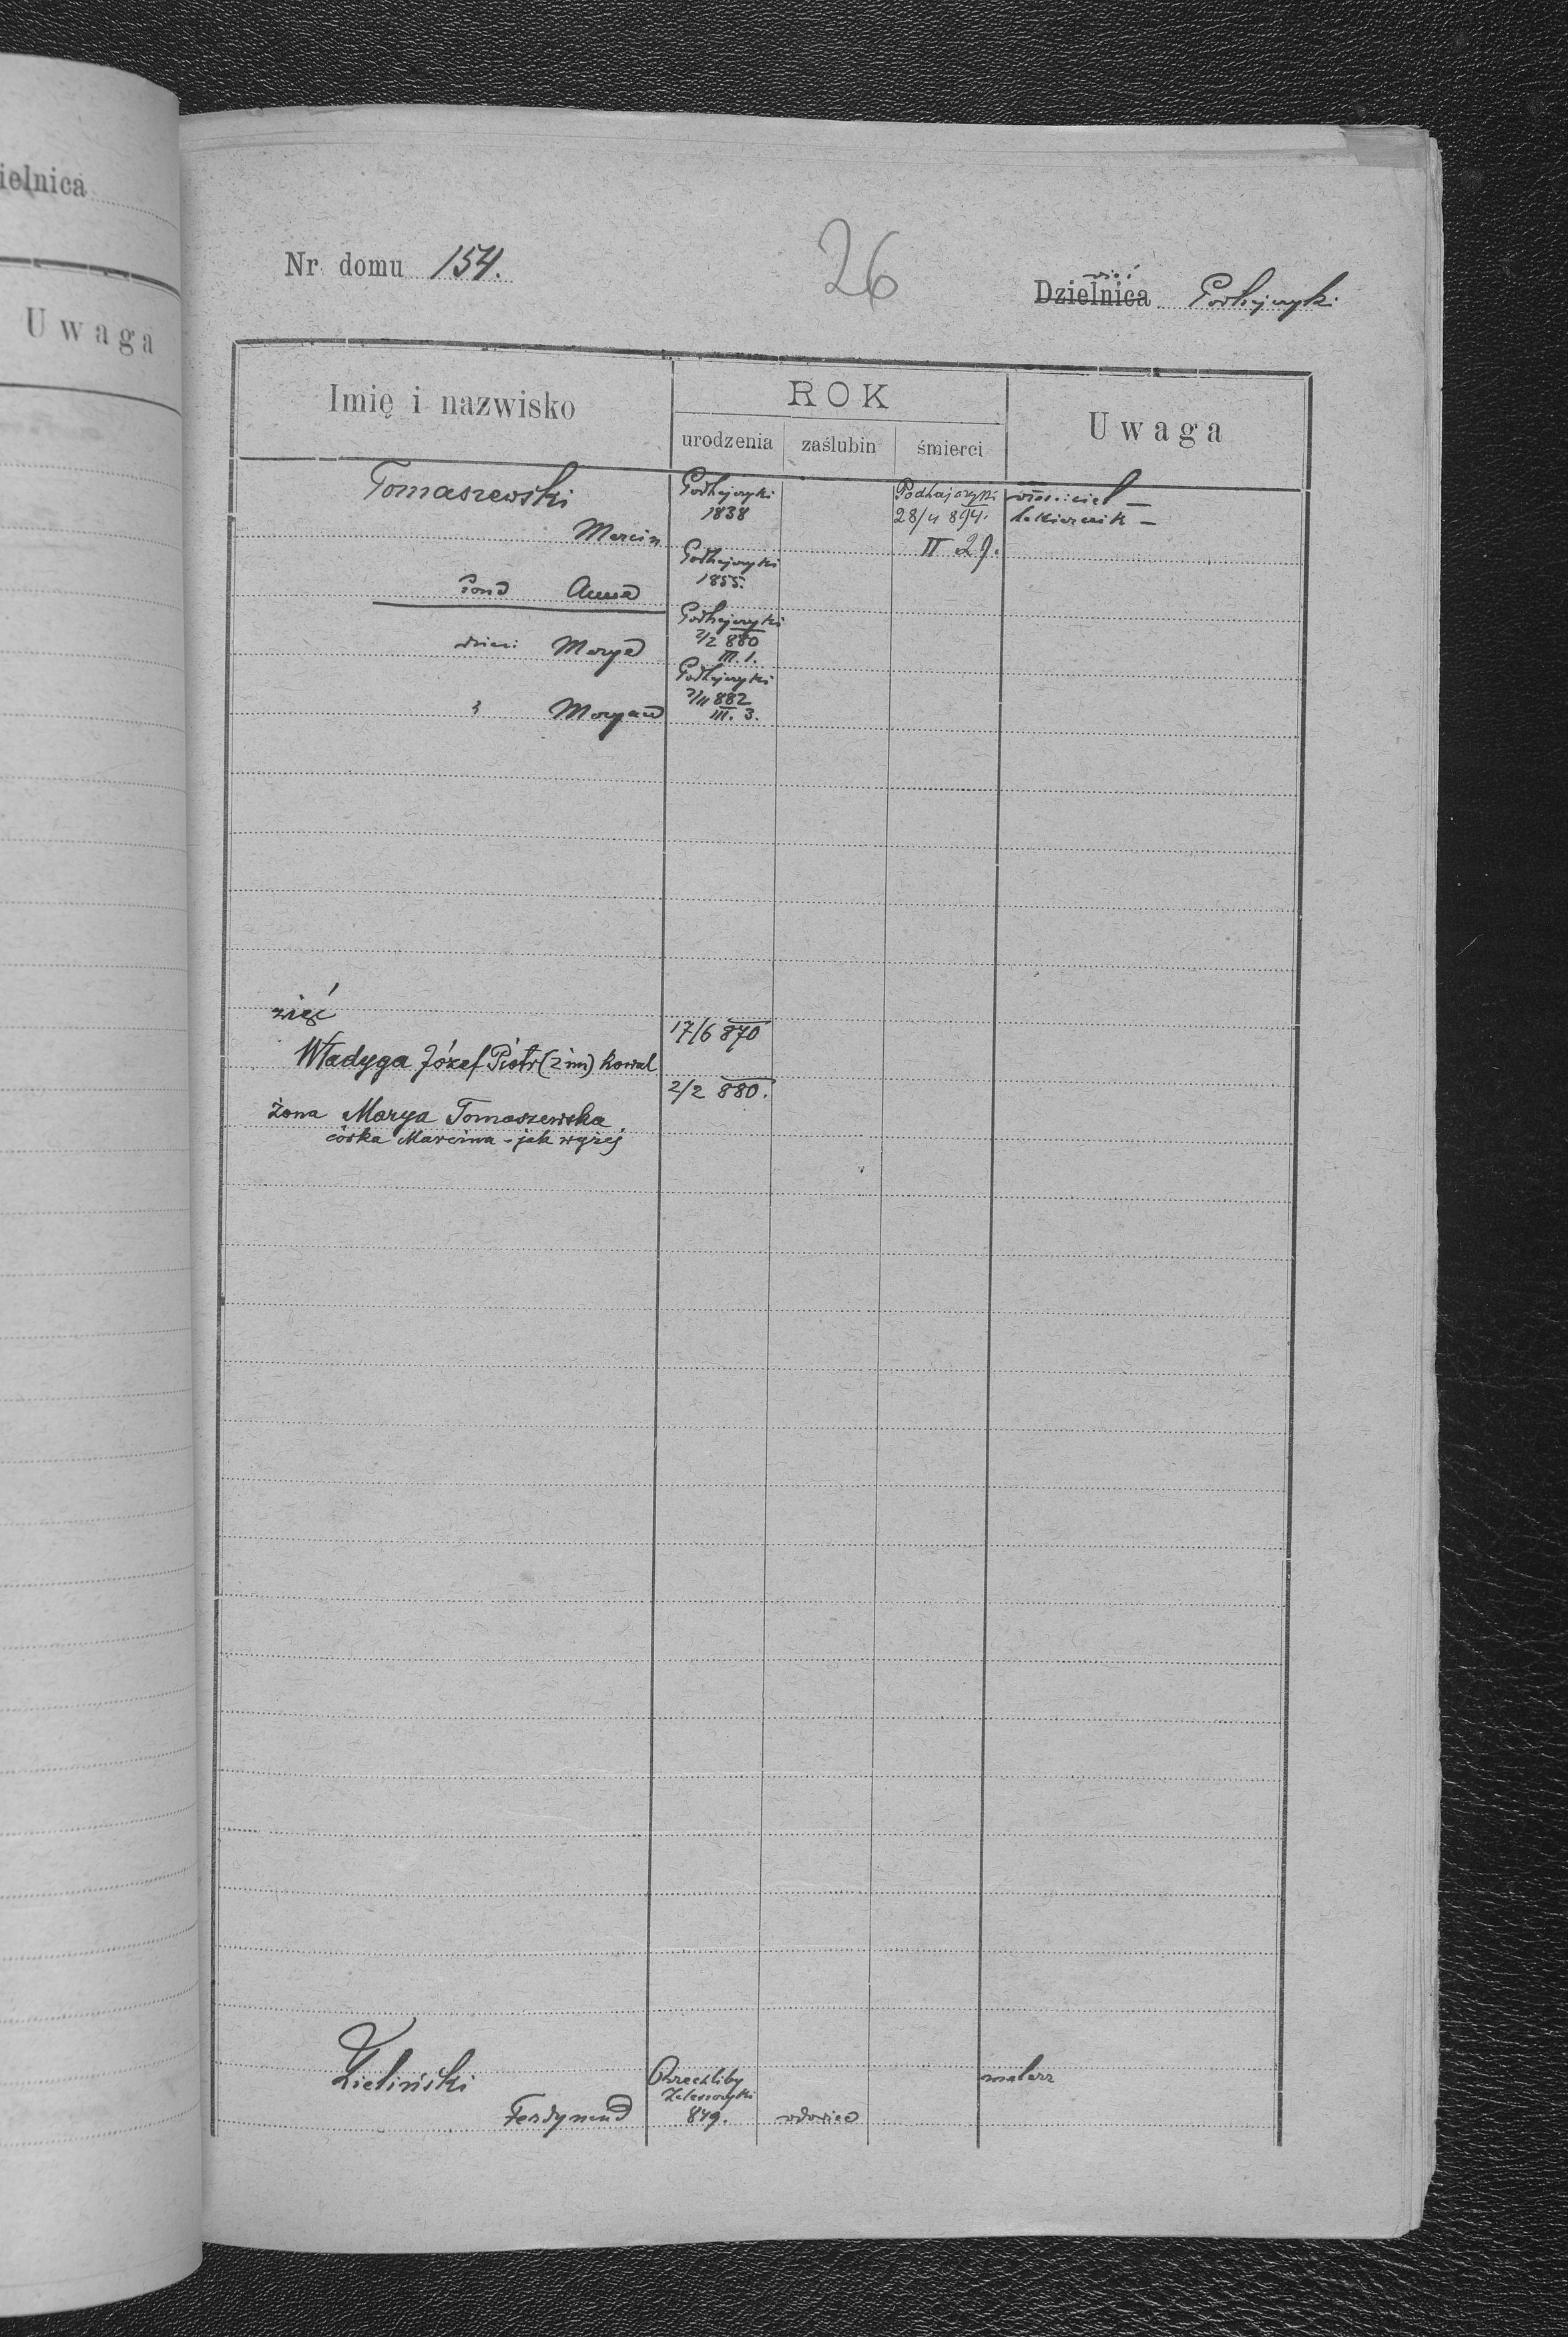 ielnica
Uwaga
Nr domu 154.
26
wieś
Dzielnica Podhajczyki
Imię i nazwisko
ROK
urodzenia zaślubin śmierci
Uwaga
Tomaszewski
Marcin
Podhajczyki
1838
Podhajczyki
28/4 894.
II 29.
właściciel —
lakiernik —
żona Anna
Podhajczyki
1855.
dzieci Marya
Podhajczyki
2/2 880
III. 1.
" Maryan
Podhajczyki
7/11 882
III. 3.
zięć
Władyga Józef Piotr (2 im) kowal
17/6 870
żona Marya Tomaszewska
2/2 880.
córka Marcina - jak wyżej
Zieliński
Ferdynand
849.
wdowiec
malarz